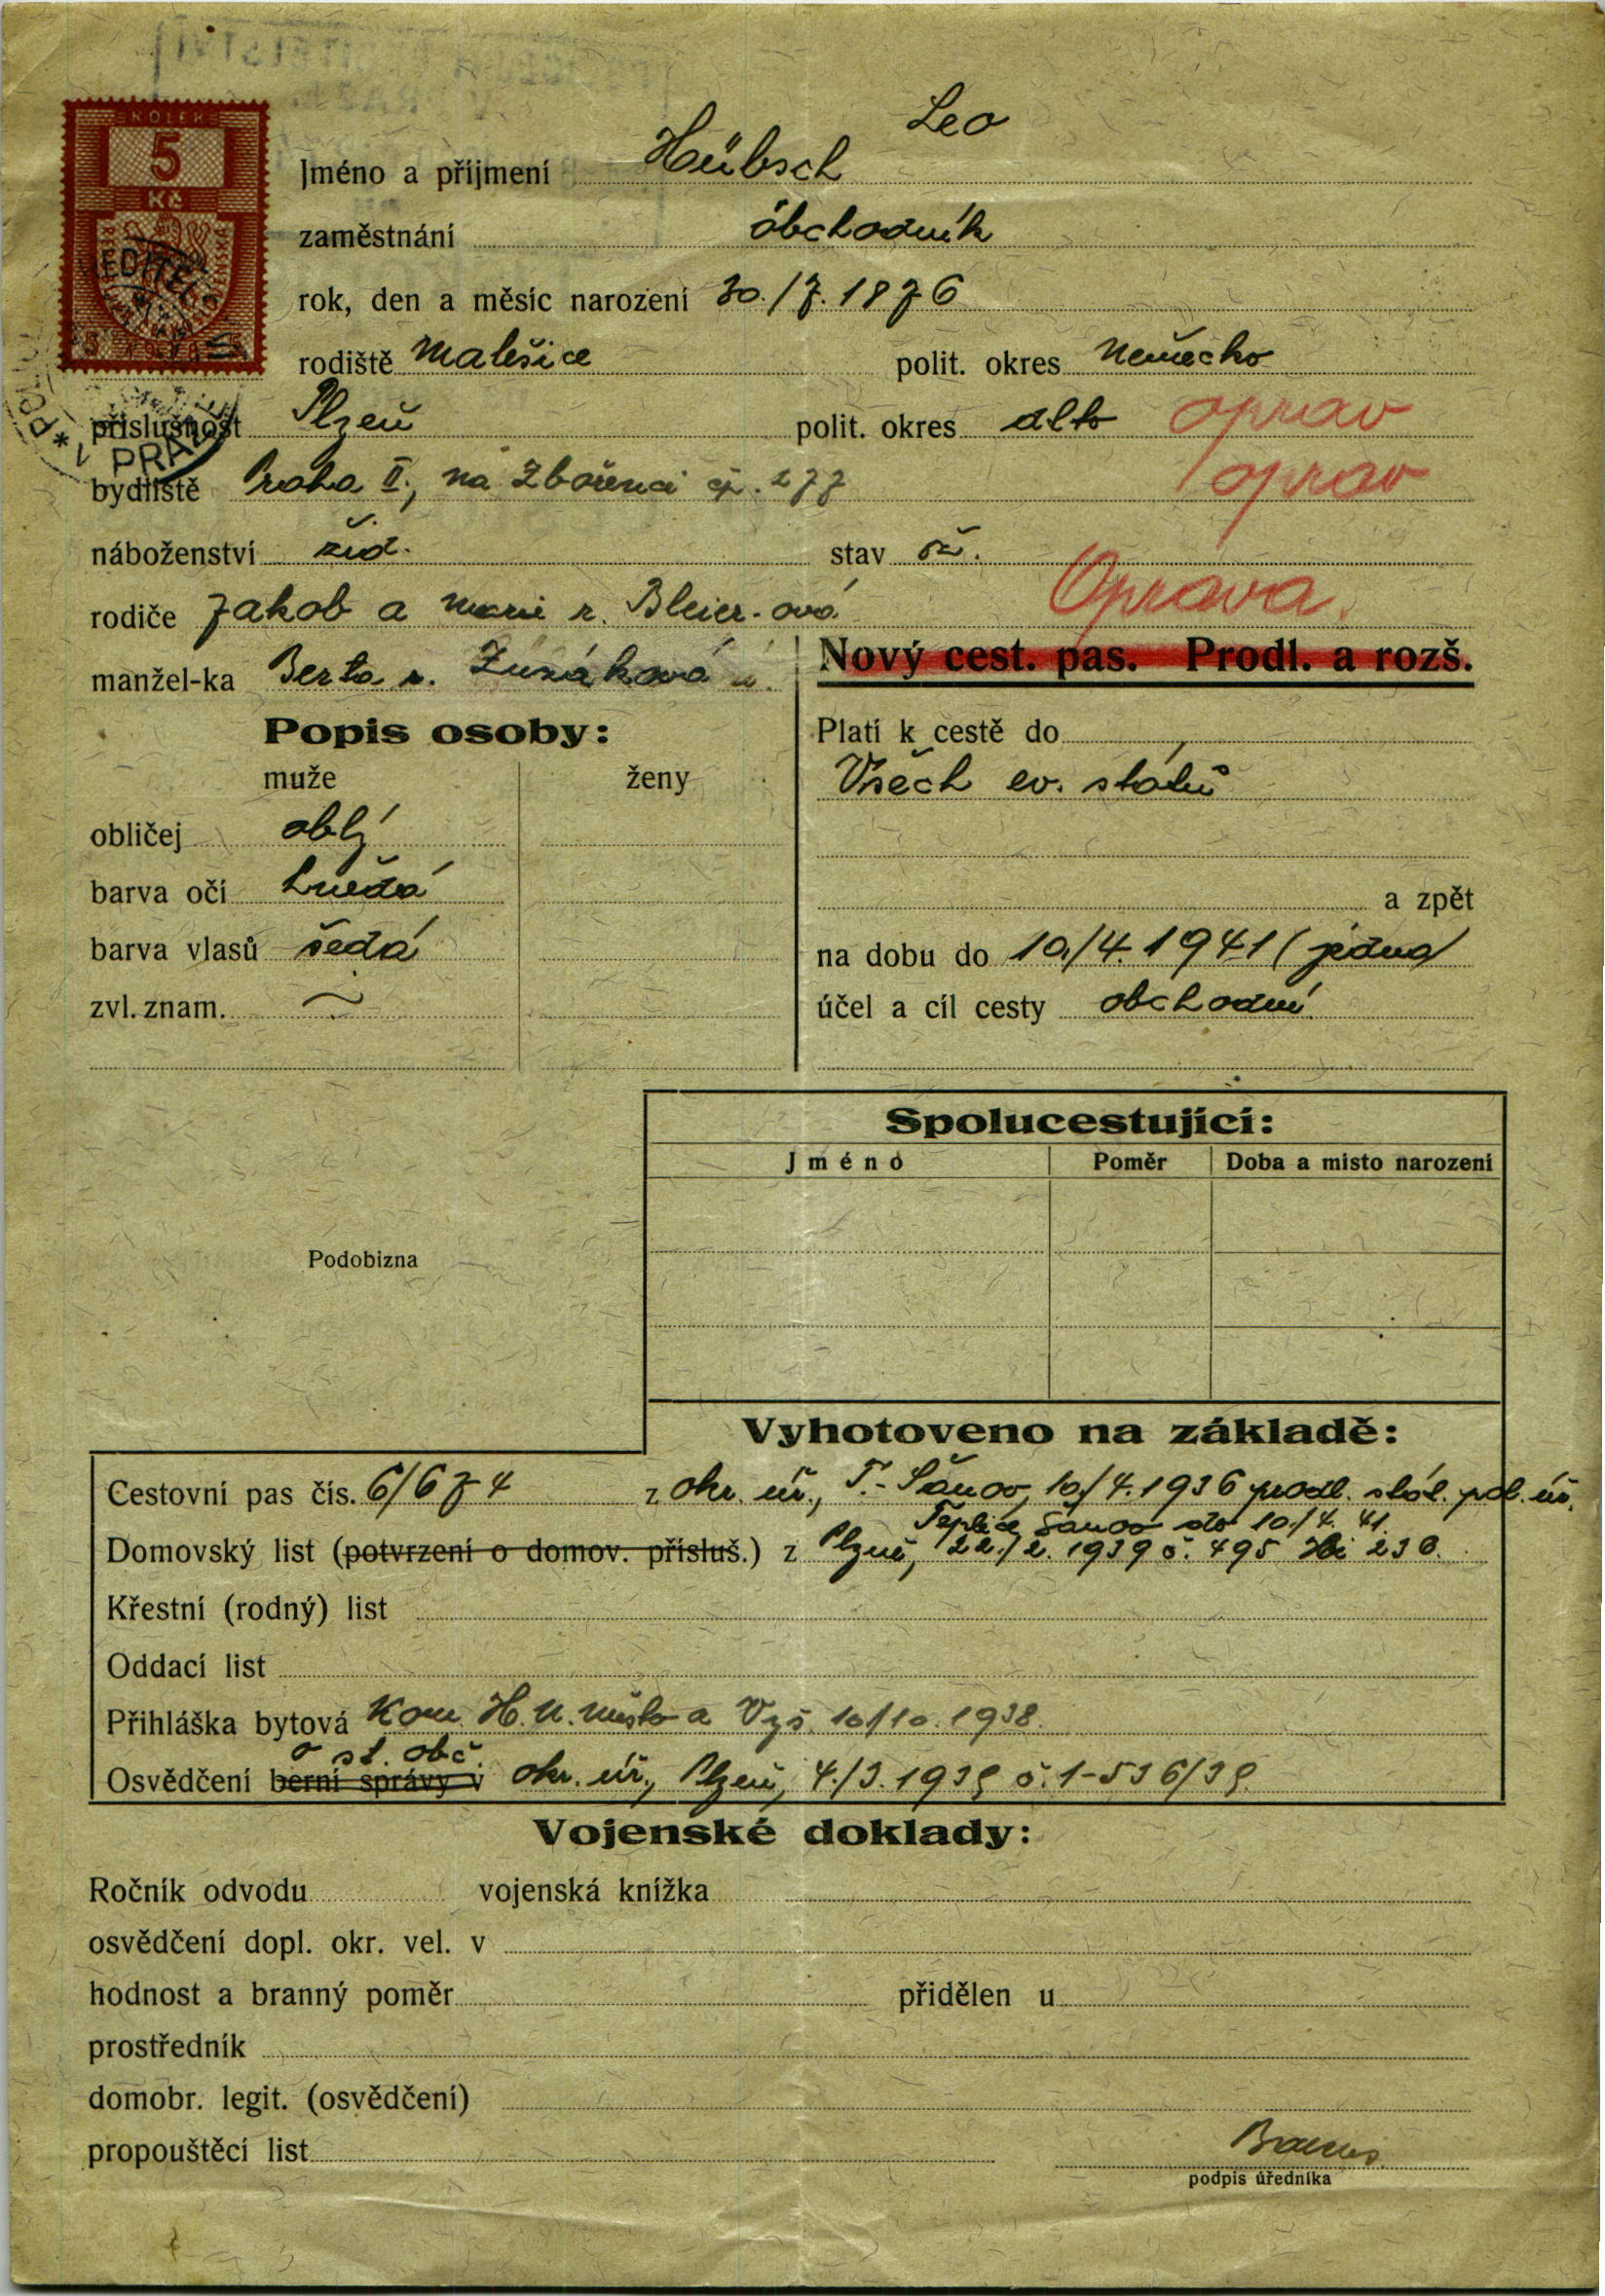 KOLEK
5
Kč
Leo
Jméno a příjmení Hübsch
zaměstnání obchodník
rok, den a měsíc narození 30./7. 1876
rodiště Malešice polit. okres Německo
příslušnost Plzeň polit. okres dtto oprav
PRA
bydliště Praha II., na Zbořenci čp. 277 oprav
náboženství žid. stav
rodiče Jakob a Marie r. Bleier-ová Oprava.
Nový cest. pas. Prodl. a rozš.
manžel-ka Berta r.
Popis osoby: Platí k cestě do
muže ženy Všech ev. států
obličej oblý
barva očí hnědá a zpět
barva vlasů šedá na dobu do 10./4. 1941 (jedna)
zvl. znam. ~ účel a cíl cesty obchodní
Spolucestující:
Jméno Poměr Doba a místo narození
Podobizna
Vyhotoveno na základě:
Cestovní pas čís. 6/674 z okr. úř., T.-Šanov, 10./4. 1936 prodl. stát. pol. úř.
Teplice Šanov do 10./4. 41.
Domovský list (potvrzení o domov. přísluš.) z Plzeň, 22./2. 1939 č. 495 236.
Křestní (rodný) list
Oddací list
Přihláška bytová Kom. H. N. město a Vyš. 10/10. 1938.
o st. obč.
Osvědčení berní správy v okr. úř., Plzeň, 4./3. 1939 č. 1-536/39.
Vojenské doklady:
Ročník odvodu vojenská knížka
osvědčení dopl. okr. vel. v
hodnost a branný poměr přidělen u
prostředník
domobr. legit. (osvědčení)
propouštěcí list
podpis úředníka